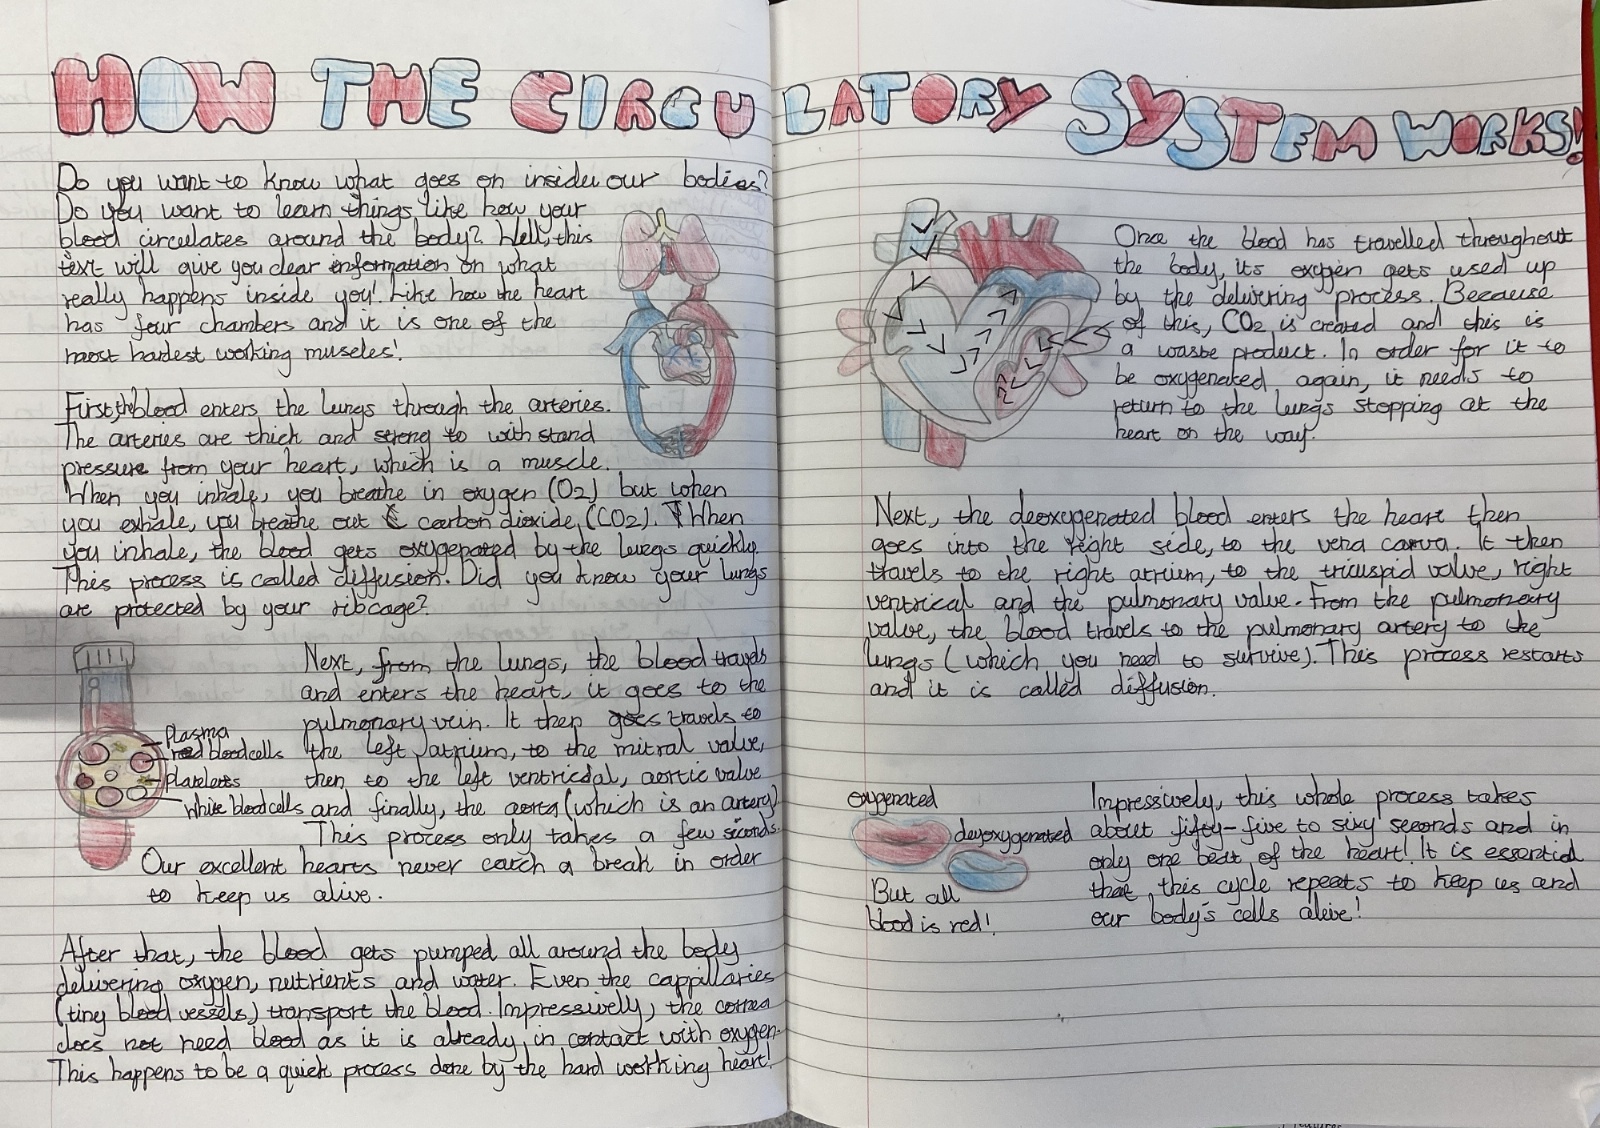 HOW THE CIRCULATORY SYSTEM WORKS!
Do you want to know what goes on inside our bodies?
Do you want to learn things like how your
blood circulates around the body? Well, this
text will give you clear information on what
really happens inside you! Like how the heart
has four chambers and it is one of the
most hardest working muscles!
First, the blood enters the lungs through the arteries.
The arteries are thick and strong to withstand
pressure from your heart, which is a muscle.
When you inhale, you breathe in oxygen (O2) but when
you exhale, you breathe out carbon dioxide, (CO2). When
you inhale, the blood gets oxygenated by the lungs quickly.
This process is called diffusion. Did you know your lungs
are protected by your ribcage?
Next, from the lungs, the blood travels
and enters the heart, it goes to the
pulmonary vein. It then goes travels to
the left atrium, to the mitral valve,
then to the left ventricdal, aortic valve
and finally, the aorta (which is an artery)
This process only takes a few seconds.
Our excellent hearts never catch a break in order
to keep us alive.
Plasma
red blood cells
Platelets
White blood cells
After that, the blood gets pumped all around the body
delivering oxygen, nutrients and water. Even the cappillaries
(tiny blood vessels) transport the blood. Impressively, the cornea
does not need blood as it is already in contact with oxygen.
This happens to be a quick process done by the hard working heart!
Once the blood has travelled throughout
the body, its oxygen gets used up
by the delivering process. Because
of this, CO2 is created and this is
a waste product. In order for it to
be oxygenated again, it needs to
return to the lungs stopping at the
heart on the way.
Next, the deoxygenated blood enters the heart then
goes into the right side, to the vena carva. It then
travels to the right atrium, to the tricuspid valve, right
ventrical and the pulmonary valve. From the pulmonary
valve, the blood travels to the pulmonary artery to the
lungs (which you need to survive). This process restarts
and it is called diffusion.
oxygenated
deoxygenated
But all
blood is red!
Impressively, this whole process takes
about fifty-five to sixy seconds and in
only one beat of the heart! It is essential
that this cycle repeats to keep us and
our body's cells alive!